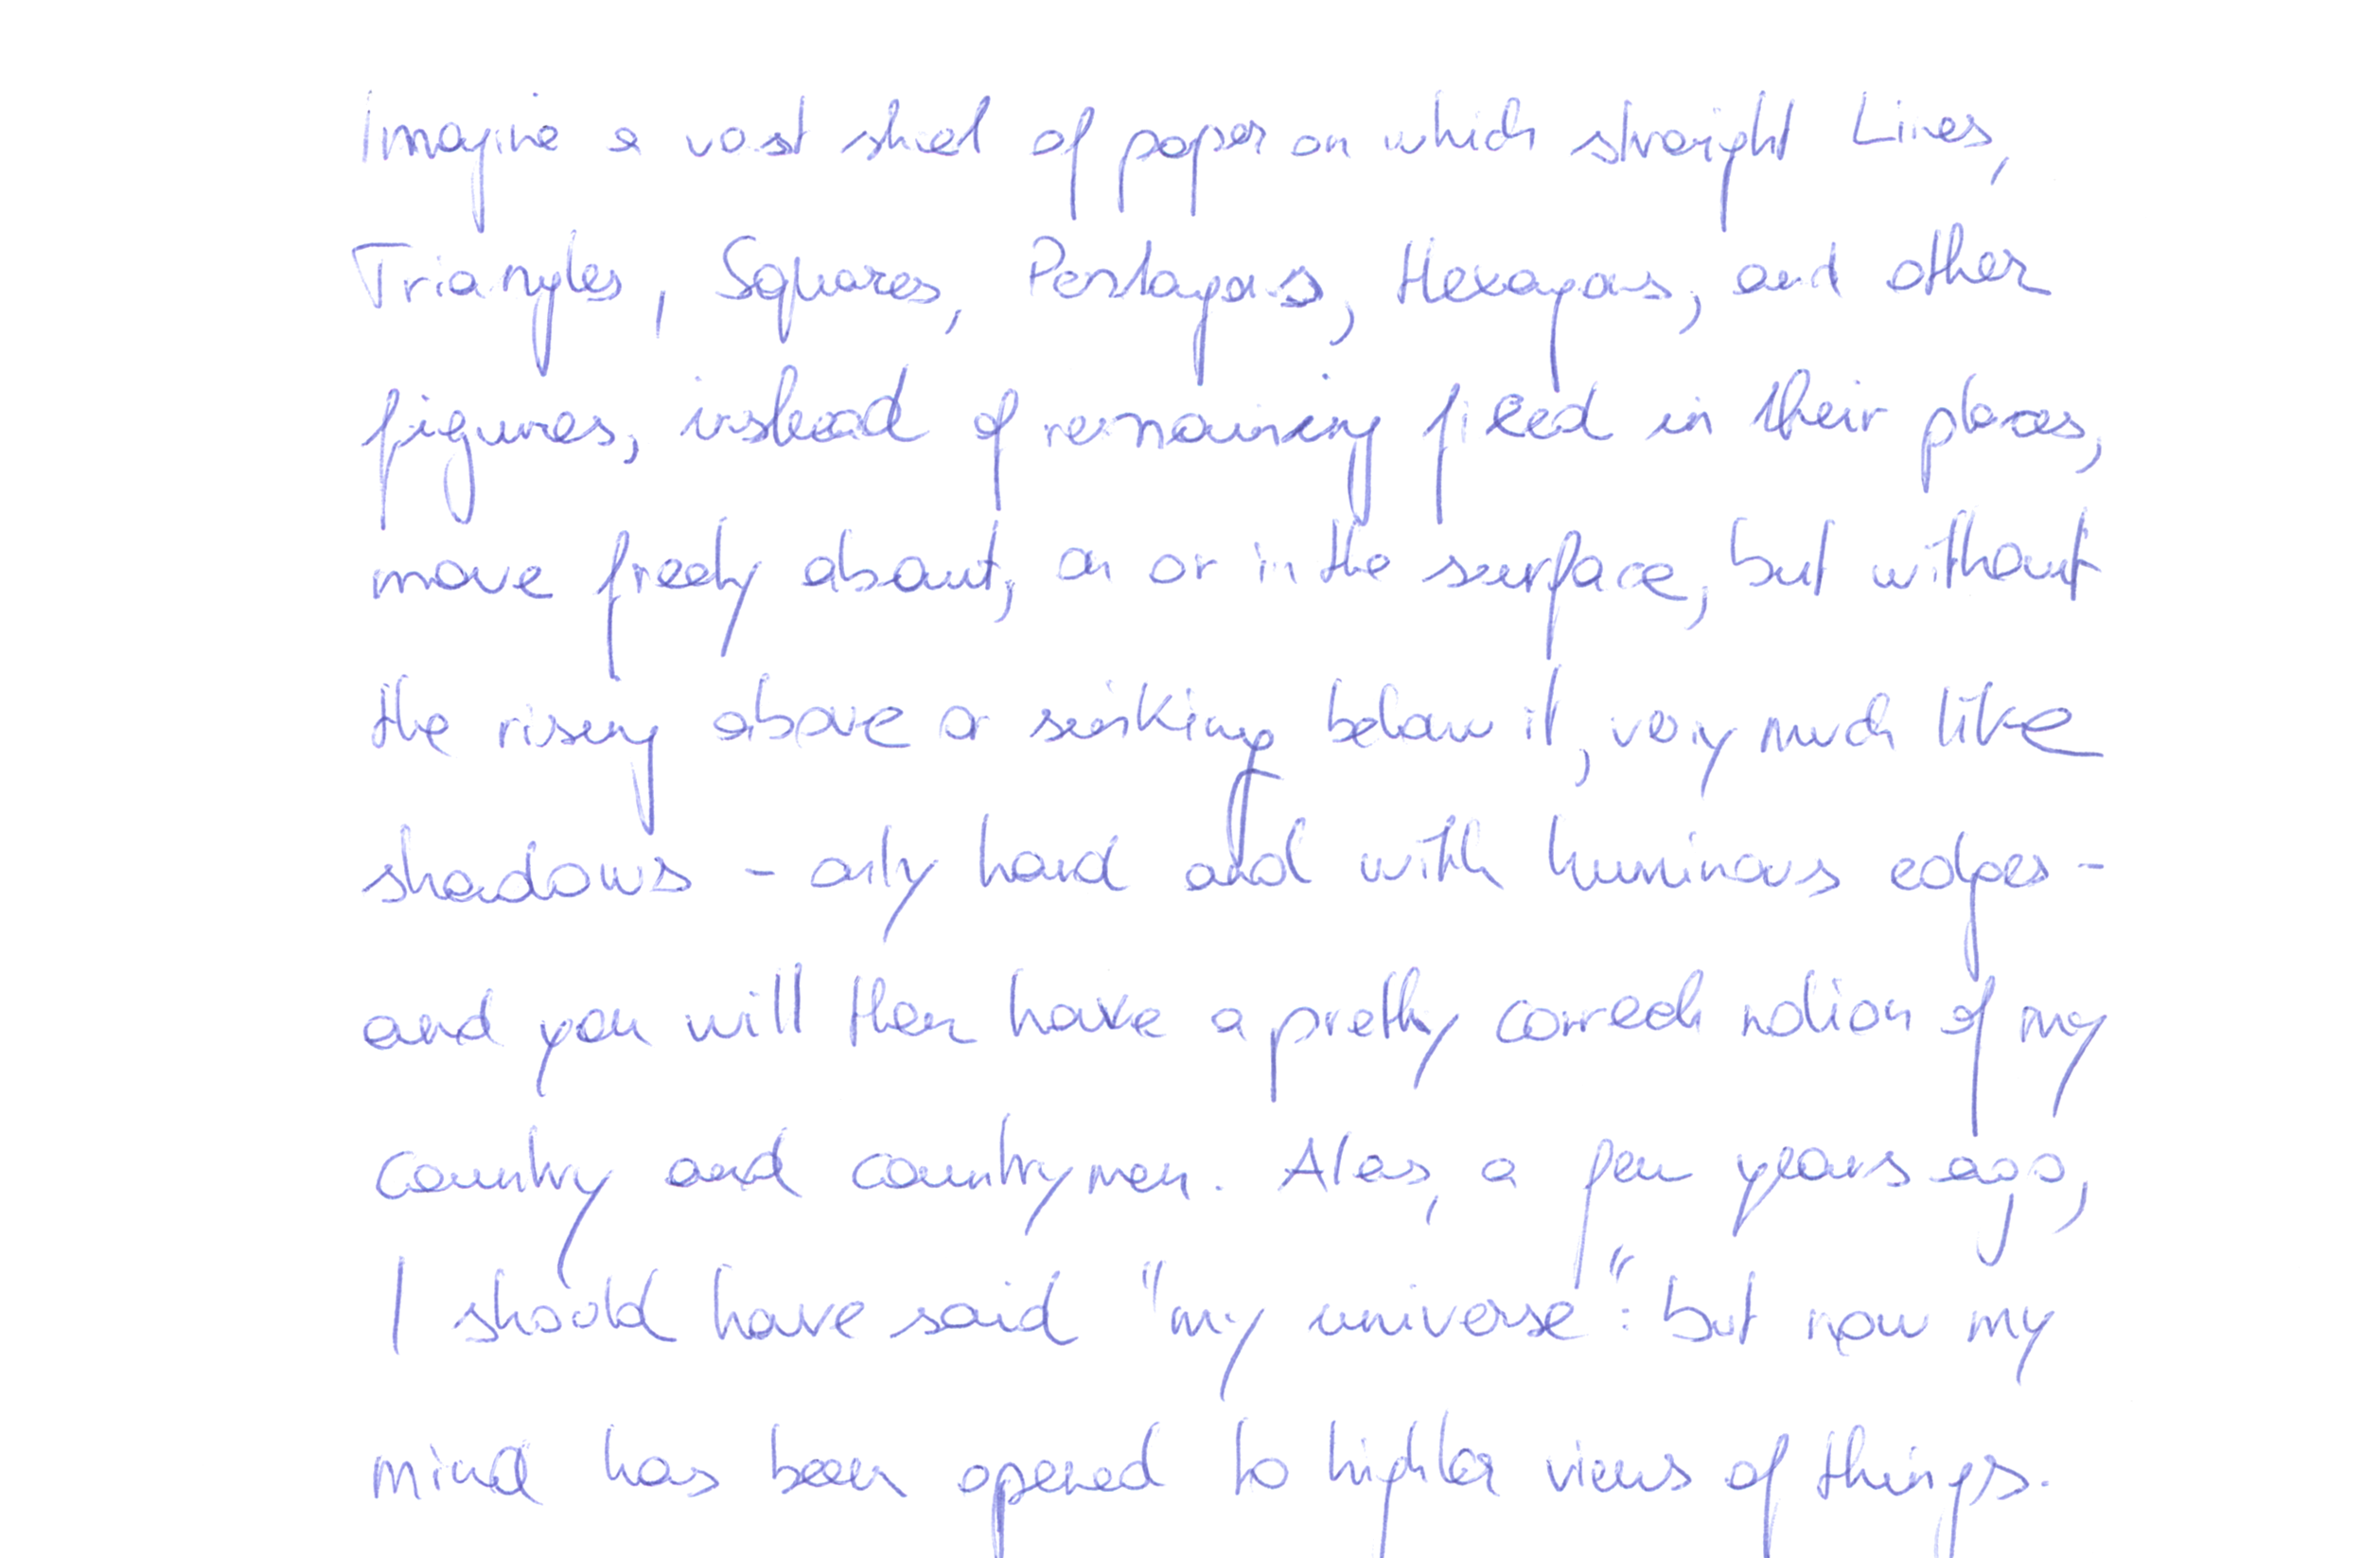 Imagine a vast sheet of paper on which straight Lines,
Triangles, Squares, Pentagons, Hexagons, and other
figures, instead of remaining fixed in their places,
move freely about, on or in the surface, but without
the rising above or sinking below it, very much like
shadows - only hard and with luminous edges -
and you will then have a pretty correct notion of my
country and countrymen. Alas, a few years ago,
I should have said "my universe": but now my
mind has been opened to higher views of things.